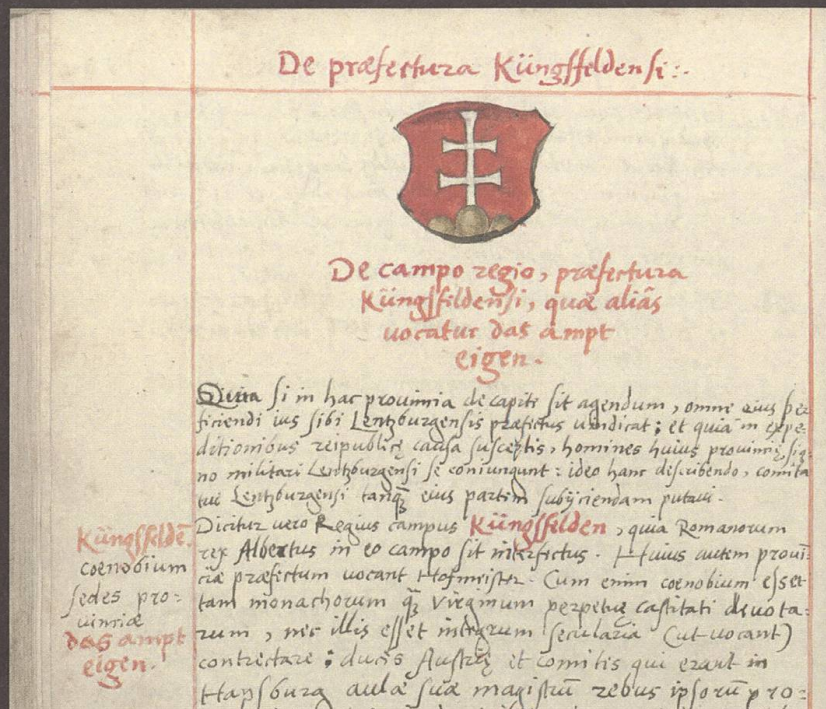 De præfectura Küngsffeldensi:.
De campo regio, præfectura
Küngsffildensi, quæ aliâs
vocatur das ampt
eigen.
Quia si in hac prouintia de capite sit agendum, omne eius per
ficiendi ius sibi Lentzburgensis præfectus vendicat; et quia in expe:
ditionibus reipublicę causa susceptis, homines huius prouintię sig:
no militari Lentzburgensi se coniungunt: ideo hanc describendo, comita
tui Lentzburgensi tanq̃ eius partem subijciendam putaui.
Dicitur vero Regius campus Küngsffilden, quia Romanorum
rex Albertus in eo campo sit interfectus. Huius autem prouin̄
ciæ præfectum vocant Hofmeister. Cum enim coenobium esset
tam monachorum q̃ virginum perpetuę castitati devota:
rum, nec illis esset integrum secularia (ut vocant)
contrectare; ducis Austrię et comitis qui erant in
Hapsburg aulæ suæ magistrū rebus ipsorū pro:
Küngsffeldē.
coenobium
sedes pro:
uintiæ
das ampt
eigen.